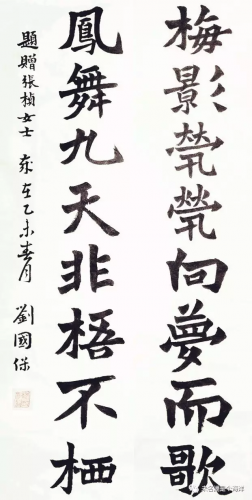 梅影茕茕向梦而歌
鳳舞九天非梧不栖
題贈张楨女士 歲在乙未春月 劉國保